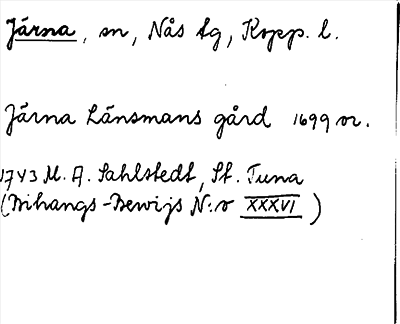 Järna, sn, Nås tg, Kopp. l.
Järna Länsmans gård 1699 or.
1743 M. A. Sahlstedt, St. Tuna
(Bihangs-Bewijs N:o XXXVI)